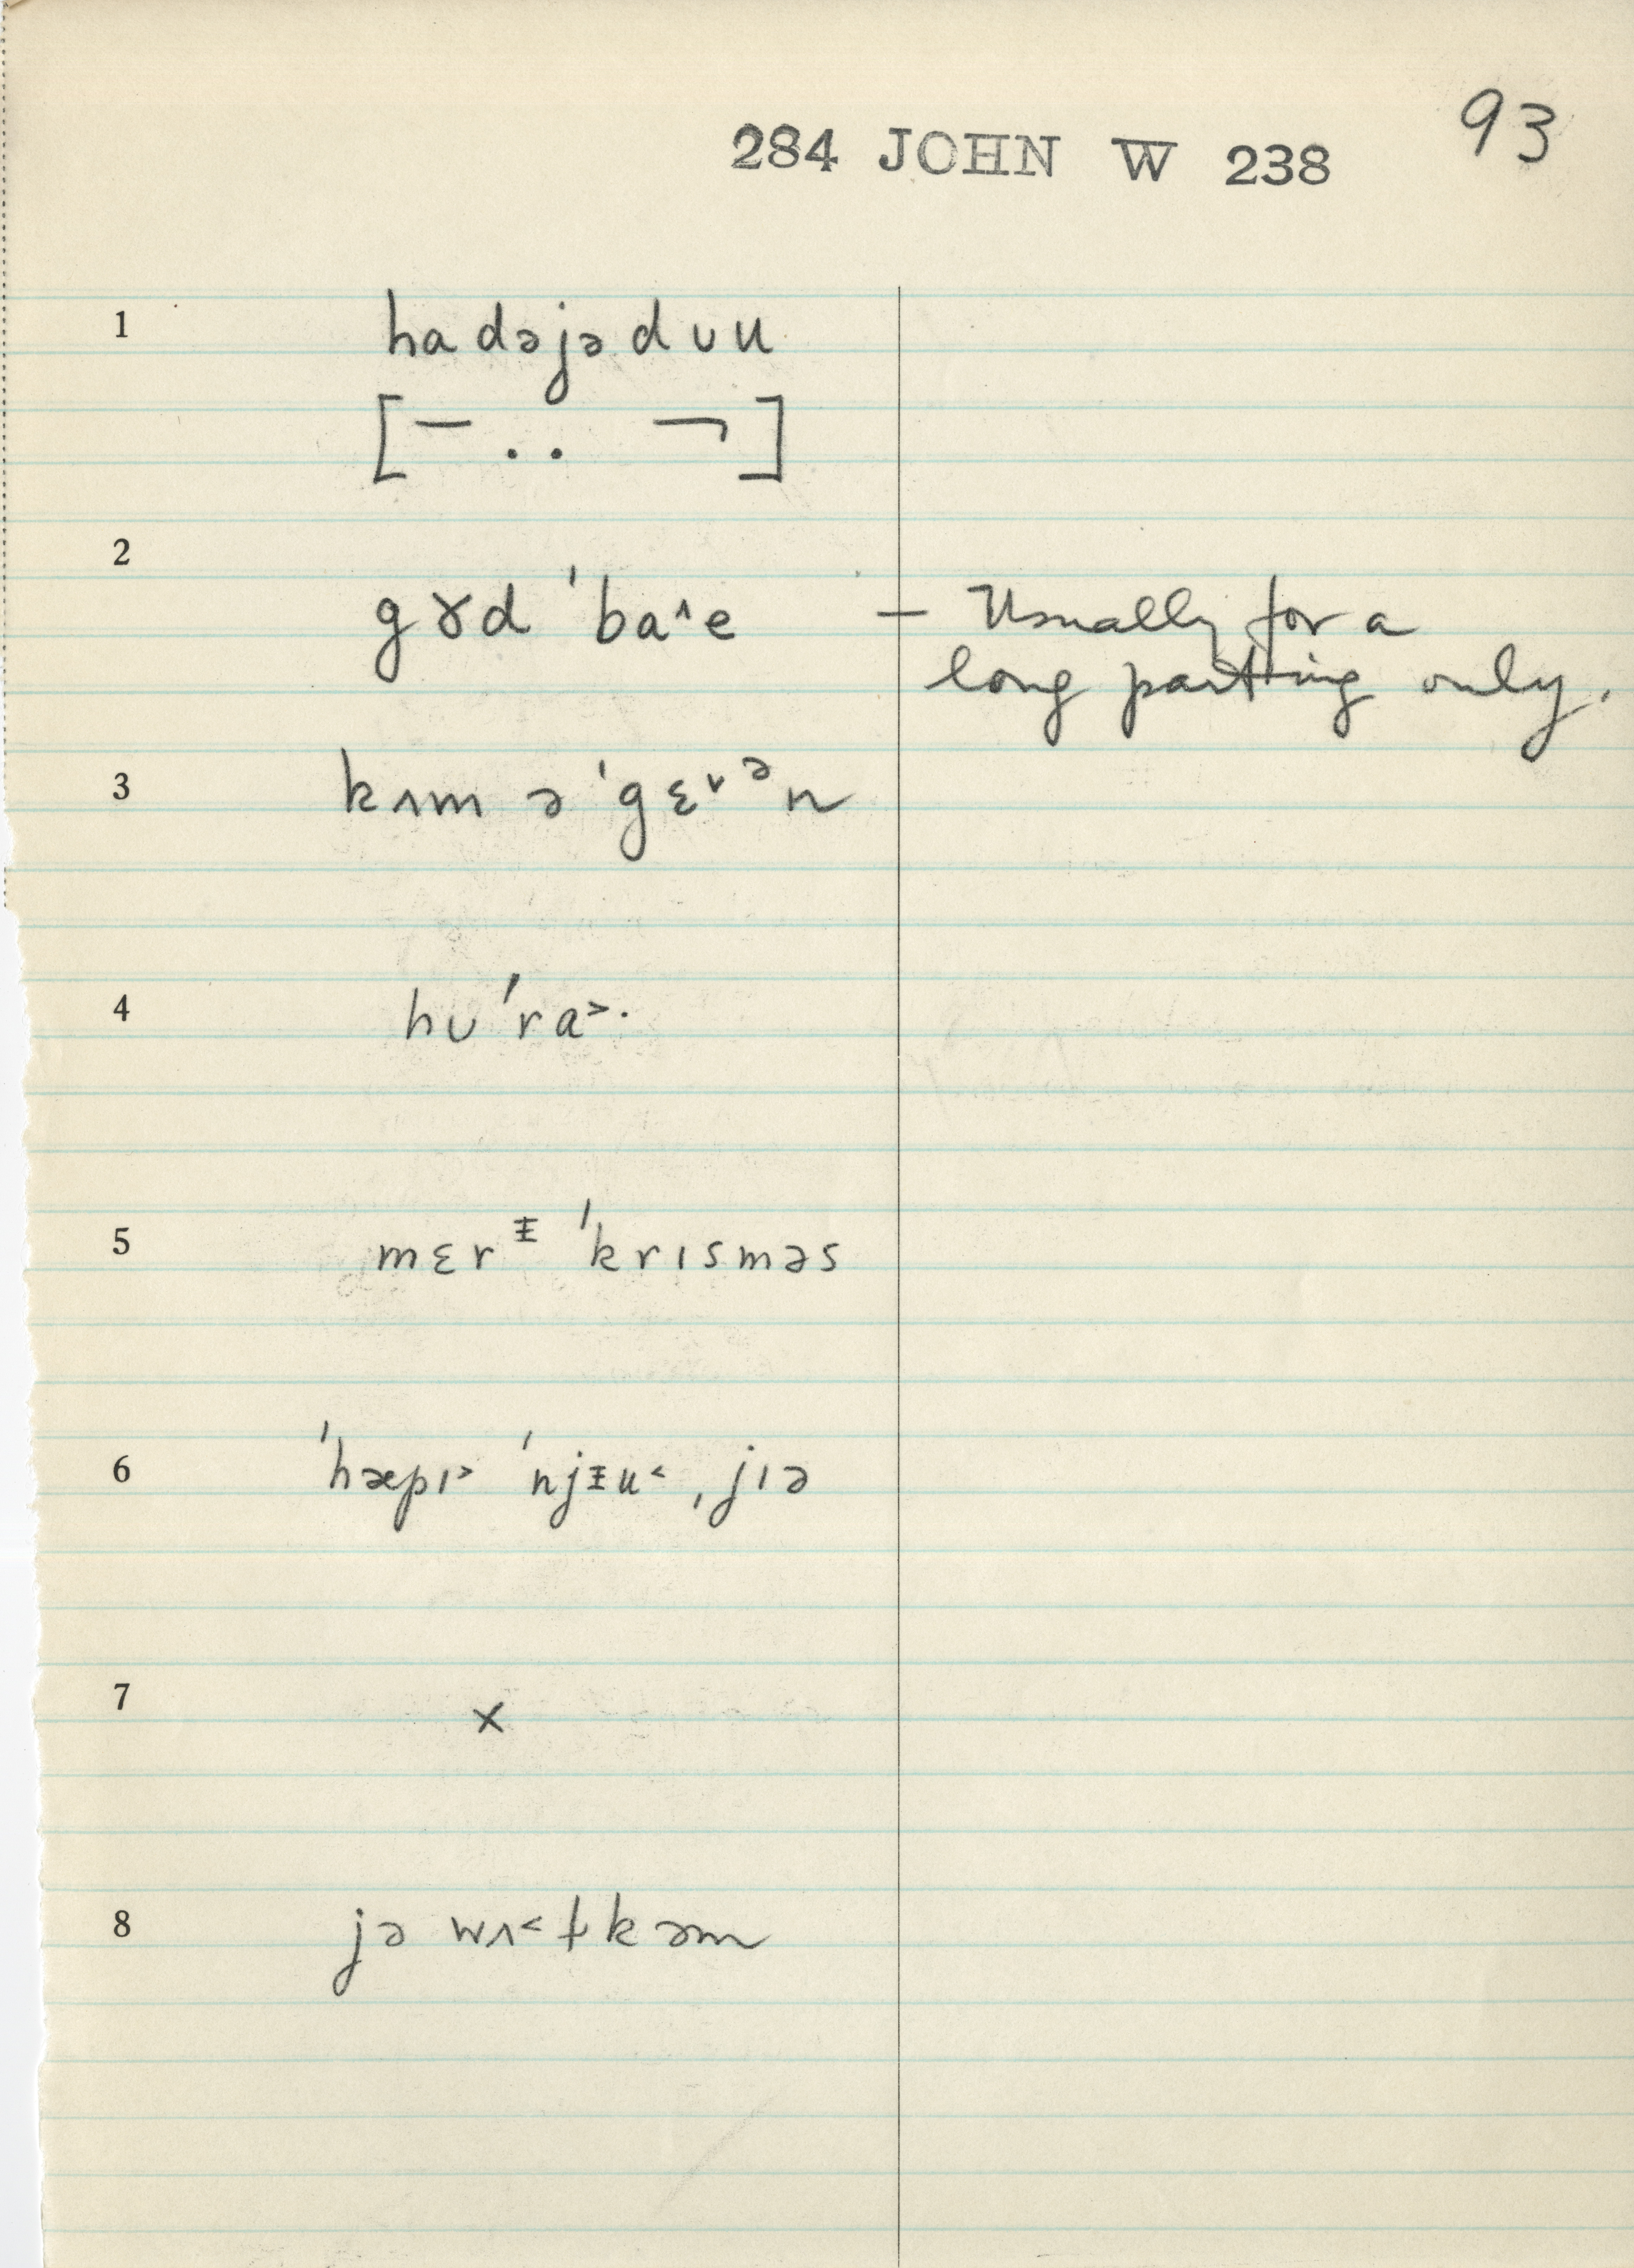 93
284 JOHN W 238
1 hadəjədʊu
[¯ . . ¬]
2
gɤd ˈba˄e — Usually for a
long parting only.
3 kʌm ə ˈgɛ˅ᵊn
4 hʊˈra˃·
5 mɛrᵻ ˈkrɪsməs
6 ˈhæpɪ˃ ˈnjᵻu˂ ˌjɪə
7 x
8 jə wʌ˂ɫkəm